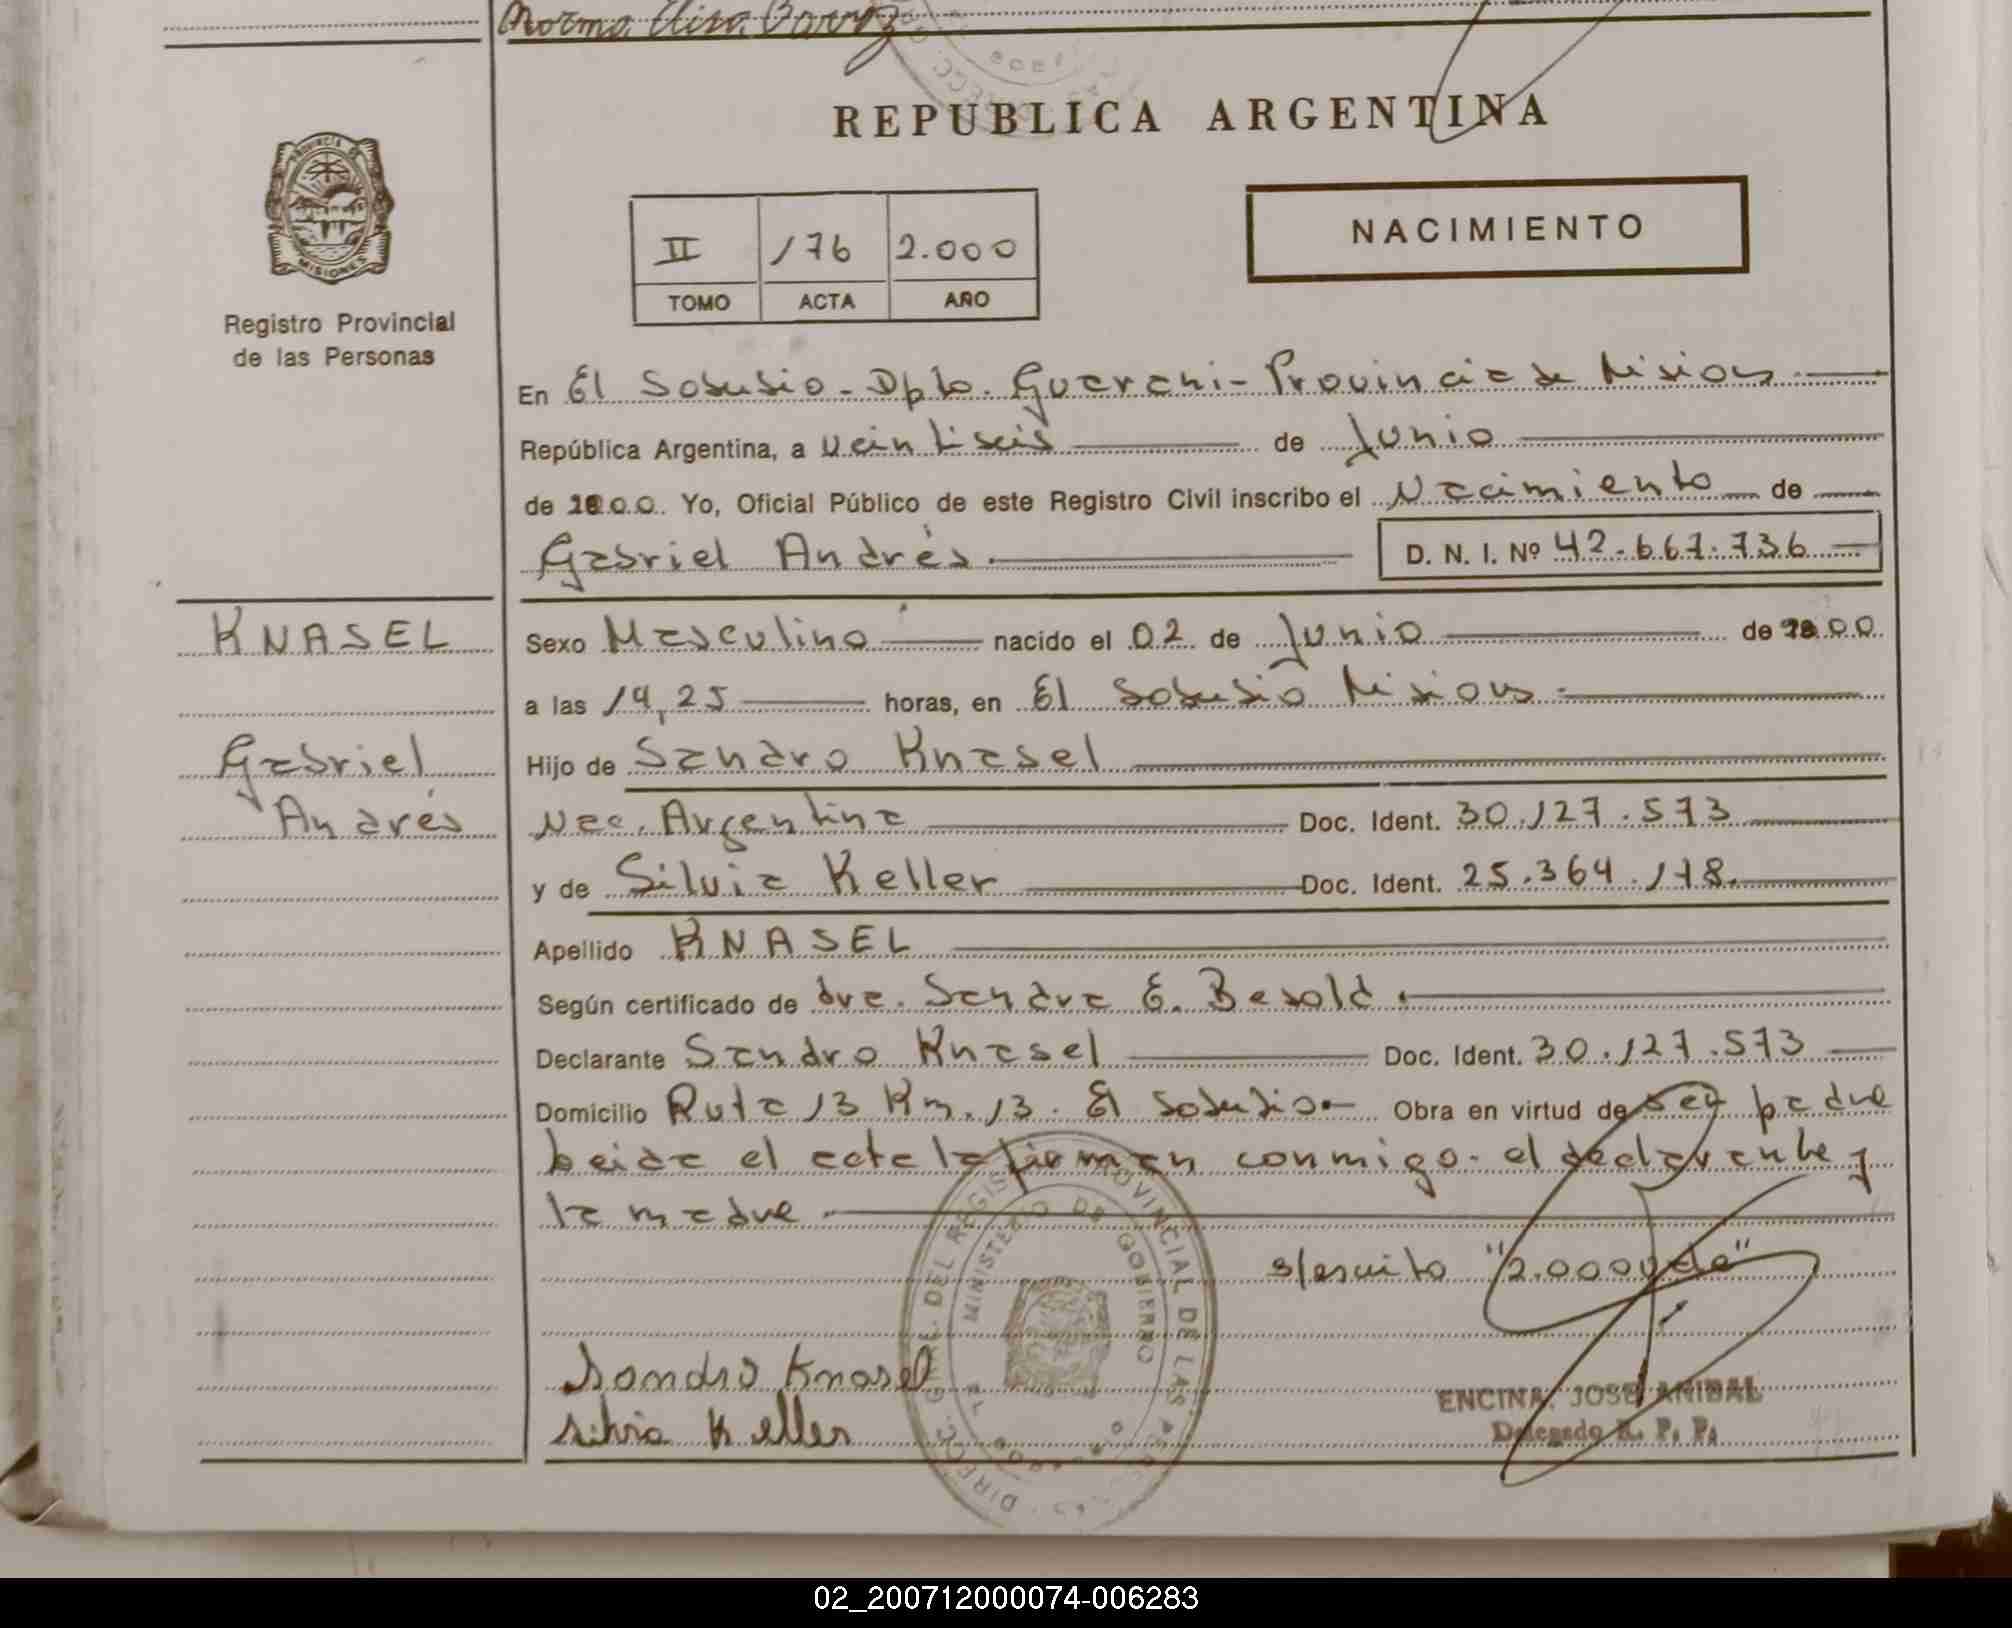 Norma Elisa
REPUBLICA ARGENTINA
PROVINCIA DE
MISIONES
Registro Provincial
de las Personas
II 176 2.000
TOMO ACTA AÑO
NACIMIENTO
En El Soberbio - Dpto. Guarani - Provincia de Misiones
República Argentina, a veintiseis de Junio
de 2000. Yo, Oficial Público de este Registro Civil inscribo el Nacimiento de
Gabriel Andrés. D. N. I. Nº 42.667.736
KNASEL
Sexo Masculino nacido el 02 de Junio de 2000
a las 14,25 horas, en El Soberbio Misiones.
Gabriel
Andrés
Hijo de Sandro Knasel
Nac. Argentina Doc. Ident. 30.127.573
y de Silvia Keller Doc. Ident. 25.364.118.
Apellido KNASEL
Según certificado de dra. Sandra E. Besold.
Declarante Sandro Knasel Doc. Ident. 30.127.573
Domicilio Ruta 13 Km. 13. El Soberbio Obra en virtud de ser padre
leida el acta la firman conmigo. el declarante y
la madre
s/escrito "2.000 y de"
Sandro Knasel
Silvia Keller
DIRECC. GRAL. DEL REGISTRO PROVINCIAL DE LAS PERSONAS
MINISTERIO DE GOBIERNO
ENCINA, JOSE ANIBAL
Delegado R. P. P.
02_200712000074-006283